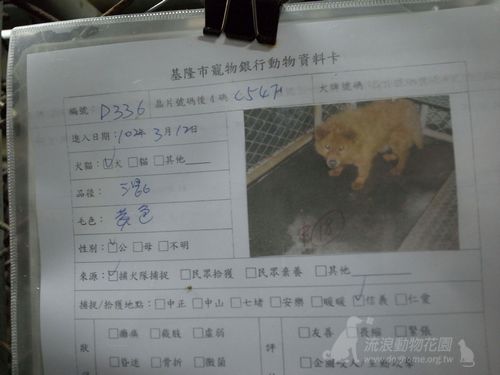 基隆市寵物銀行動物資料卡
編號 D336 晶片號碼後4碼 C547 犬牌號碼
進入日期：102年3月12日
犬貓：☑犬 □貓 □其他
品種：
毛色：黃色
性別：☑公 □母 □不明
來源：☑捕犬隊捕捉 □民眾拾獲 □民眾棄養 □其他
捕捉/拾獲地點：□中正 □中山 □七堵 □安樂 □暖暖 ☑信義 □仁愛
狀 □癱瘓 □截肢 □虛弱 評 □友善 □畏縮 □緊張
□昏迷 □骨折 □黴菌
流浪動物花園
www.doghome.org.tw